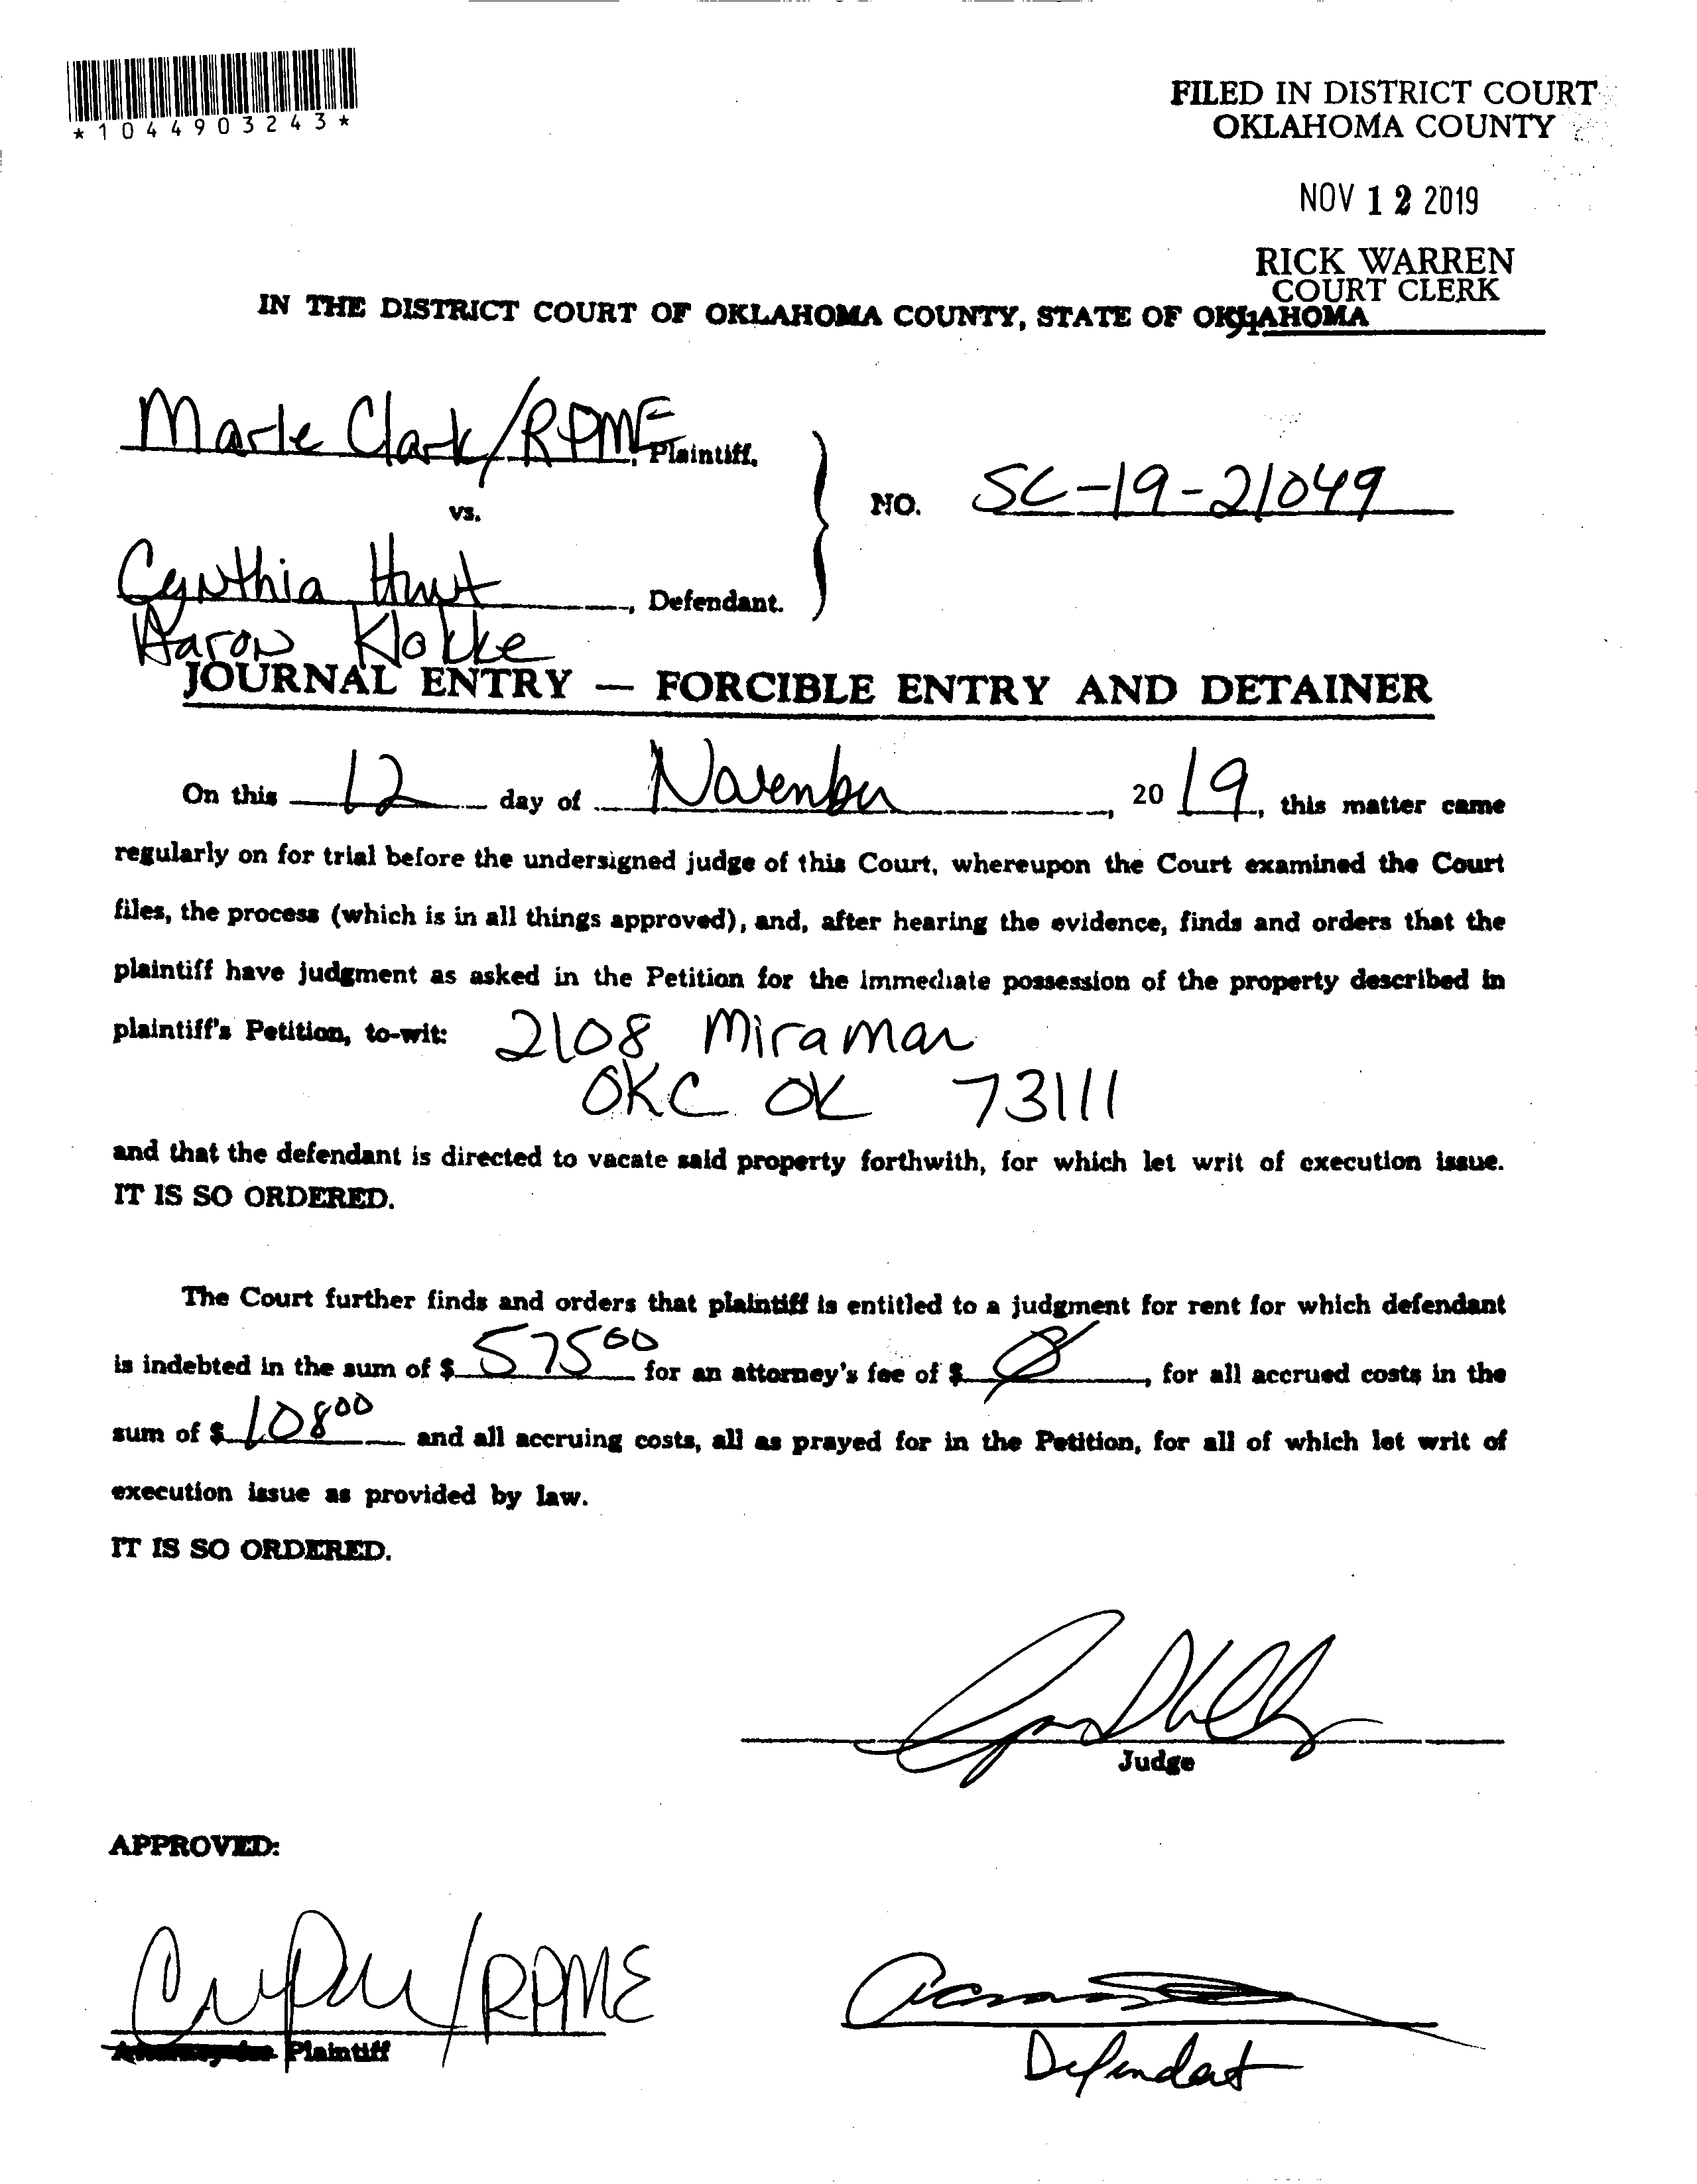 *1044903243*
FILED IN DISTRICT COURT
OKLAHOMA COUNTY
NOV 12 2019
RICK WARREN
COURT CLERK
IN THE DISTRICT COURT OF OKLAHOMA COUNTY, STATE OF OKLAHOMA
Marle Clark/RPME, Plaintiff,
vs.
NO. SC-19-21049
Cynthia Hunt, Defendant.
Aaron Klokke
JOURNAL ENTRY — FORCIBLE ENTRY AND DETAINER
On this 12 day of November, 2019, this matter came
regularly on for trial before the undersigned judge of this Court, whereupon the Court examined the Court
files, the process (which is in all things approved), and, after hearing the evidence, finds and orders that the
plaintiff have judgment as asked in the Petition for the immediate possession of the property described in
plaintiff's Petition, to-wit: 2108 Miramar
OKC OK 73111
and that the defendant is directed to vacate said property forthwith, for which let writ of execution issue.
IT IS SO ORDERED.
The Court further finds and orders that plaintiff is entitled to a judgment for rent for which defendant
is indebted in the sum of $ 575 00 for an attorney's fee of $ Ø, for all accrued costs in the
sum of $ 108 00 and all accruing costs, all as prayed for in the Petition, for all of which let writ of
execution issue as provided by law.
IT IS SO ORDERED.
Judge
APPROVED:
/RPME
Plaintiff
Defendant